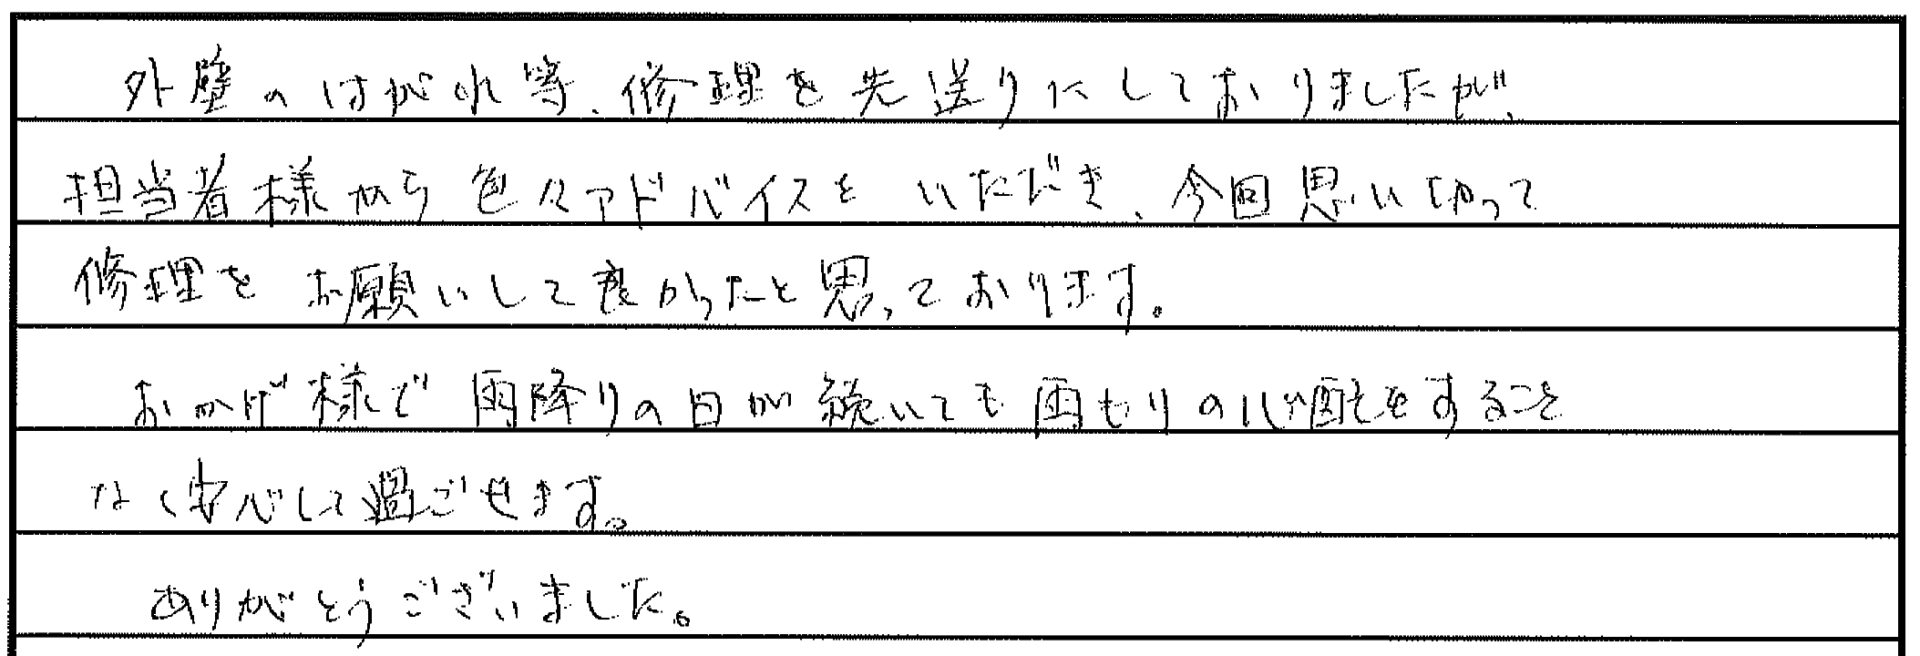 外壁のはがれ等、修理を先送りにしておりましたが、
担当者様から色々アドバイスをいただき、今回思い切って
修理をお願いして良かったと思っております。
おかげ様で雨降りの日が続いても雨もりの心配をすること
なく安心して過ごせます。
ありがとうございました。